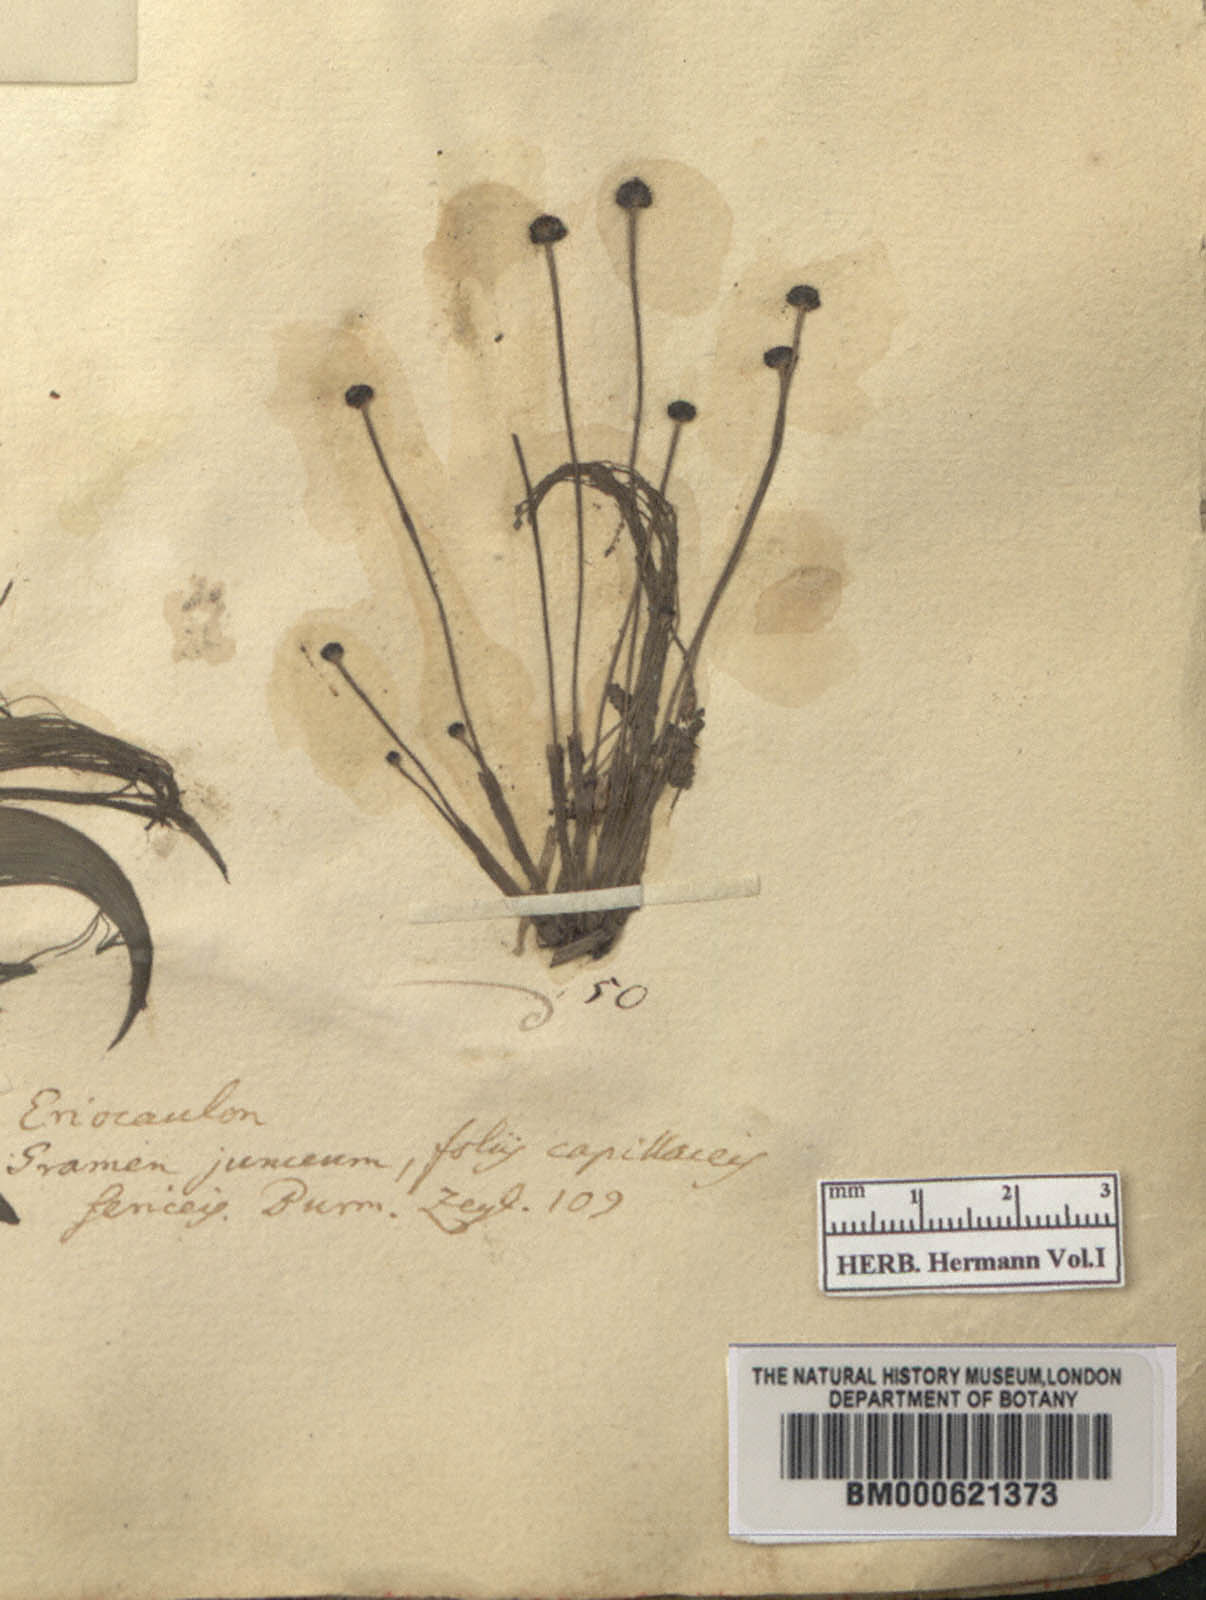 50
Eriocaulon
Gramen junceum, foliis capillaceis
sericeis. Burm. Zeyl. 109
mm 1 2 3
HERB. Hermann Vol.I
THE NATURAL HISTORY MUSEUM,LONDON
DEPARTMENT OF BOTANY
BM000621373